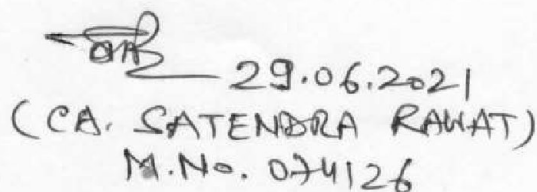 29.06.2021
(CA. SATENDRA RAWAT)
M.No. 074126